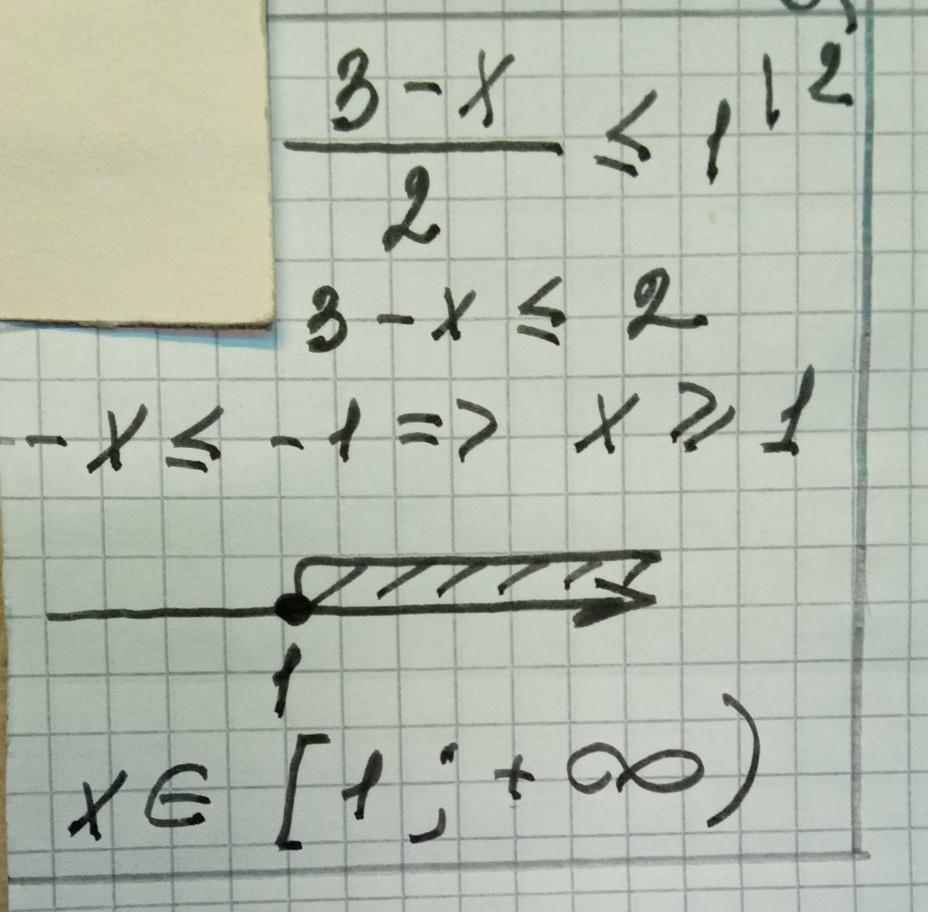 3 - x
2
≤ 1 | 2
3 - x ≤ 2
- x ≤ - 1 => x ≥ 1
1
x ∈ [1; + ∞)